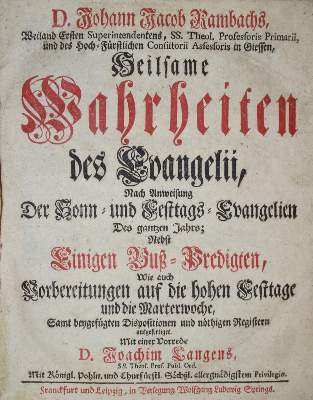 D. Johann Jacob Rambachs,
Weiland Ersten Superintendentens, SS. Theol. Professoris Primarii,
und des Hoch-Fürstlichen Consistorii Assessoris in Giessen,
Heilsame
Wahrheiten
des Evangelii,
Nach Anweisung
Der Sonn- und Festtags-Evangelien
Des gantzen Jahrs;
Nebst
Einigen Buß-Predigten,
Wie auch
Vorbereitungen auf die hohen Festtage
und die Marterwoche,
Samt beygefügten Dispositionen und nöthigen Registern
ausgefertiget.
Mit einer Vorrede
D. Joachim Langens,
SS. Theol. Prof. Publ. Ord.
Mit Königl. Pohln. und Churfürstl. Sächßl. allergnädigstem Privilegio.
Franckfurt und Leipzig, in Verlegung Wolffgang Ludewig Springs.